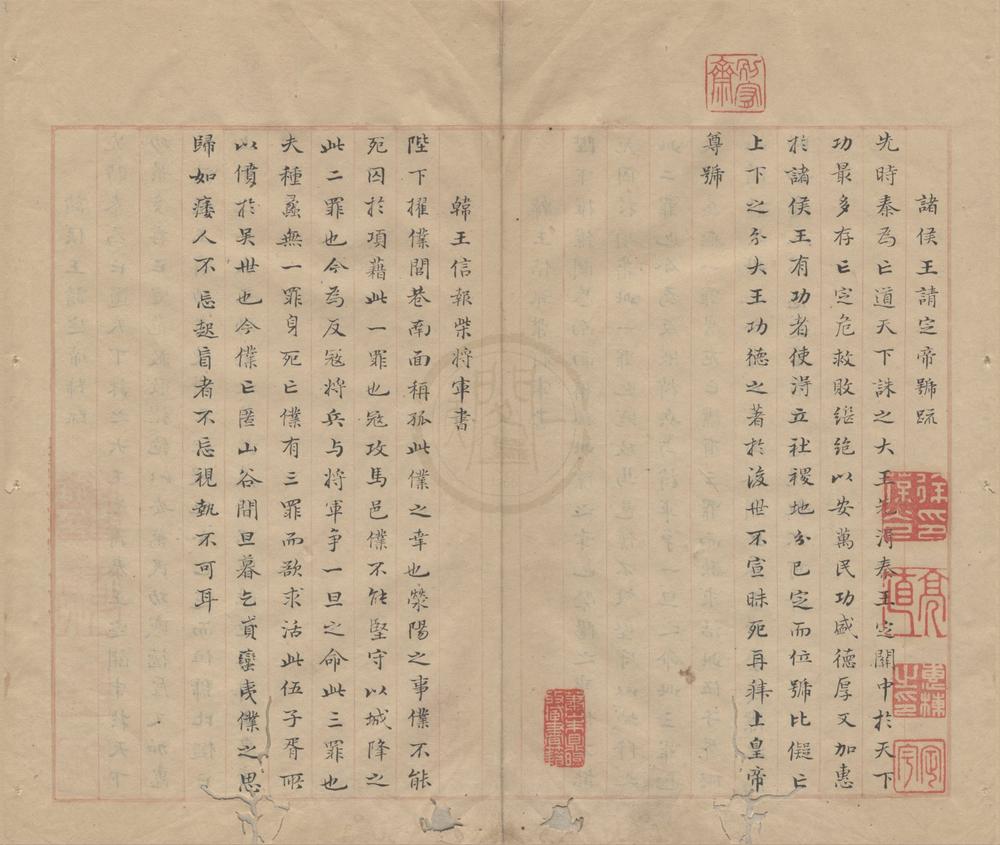 諸侯王請定帝號疏
先時秦為亡道天下誅之大王先淂秦王定關中扵天下
功最多存亡定危救敗繼絶以安萬民功盛德厚又加惠
扵諸侯王有功者使淂立社稷地分已定而位號比儗亡
上下之分大王功德之著扵後世不宣昧死再拜上皇帝
尊號
韓王信報柴將軍書
陛下擢僕閭巷南面稱孤此僕之幸也滎陽之事僕不能
死囚扵項藉此一罪也冦攻馬邑僕不能堅守以城降之
此二罪也今為反冦將兵与將軍争一旦之命此三罪也
夫種蠡無一罪身死亡僕有三罪而欲求活此伍子胥所
以僨扵吴世也今僕亡匿山谷間旦暮乞貣蠻夷僕之思
歸如痿人不忘起盲者不忘視埶不可耳
徐印
葆光
惠棟
之印
定宇